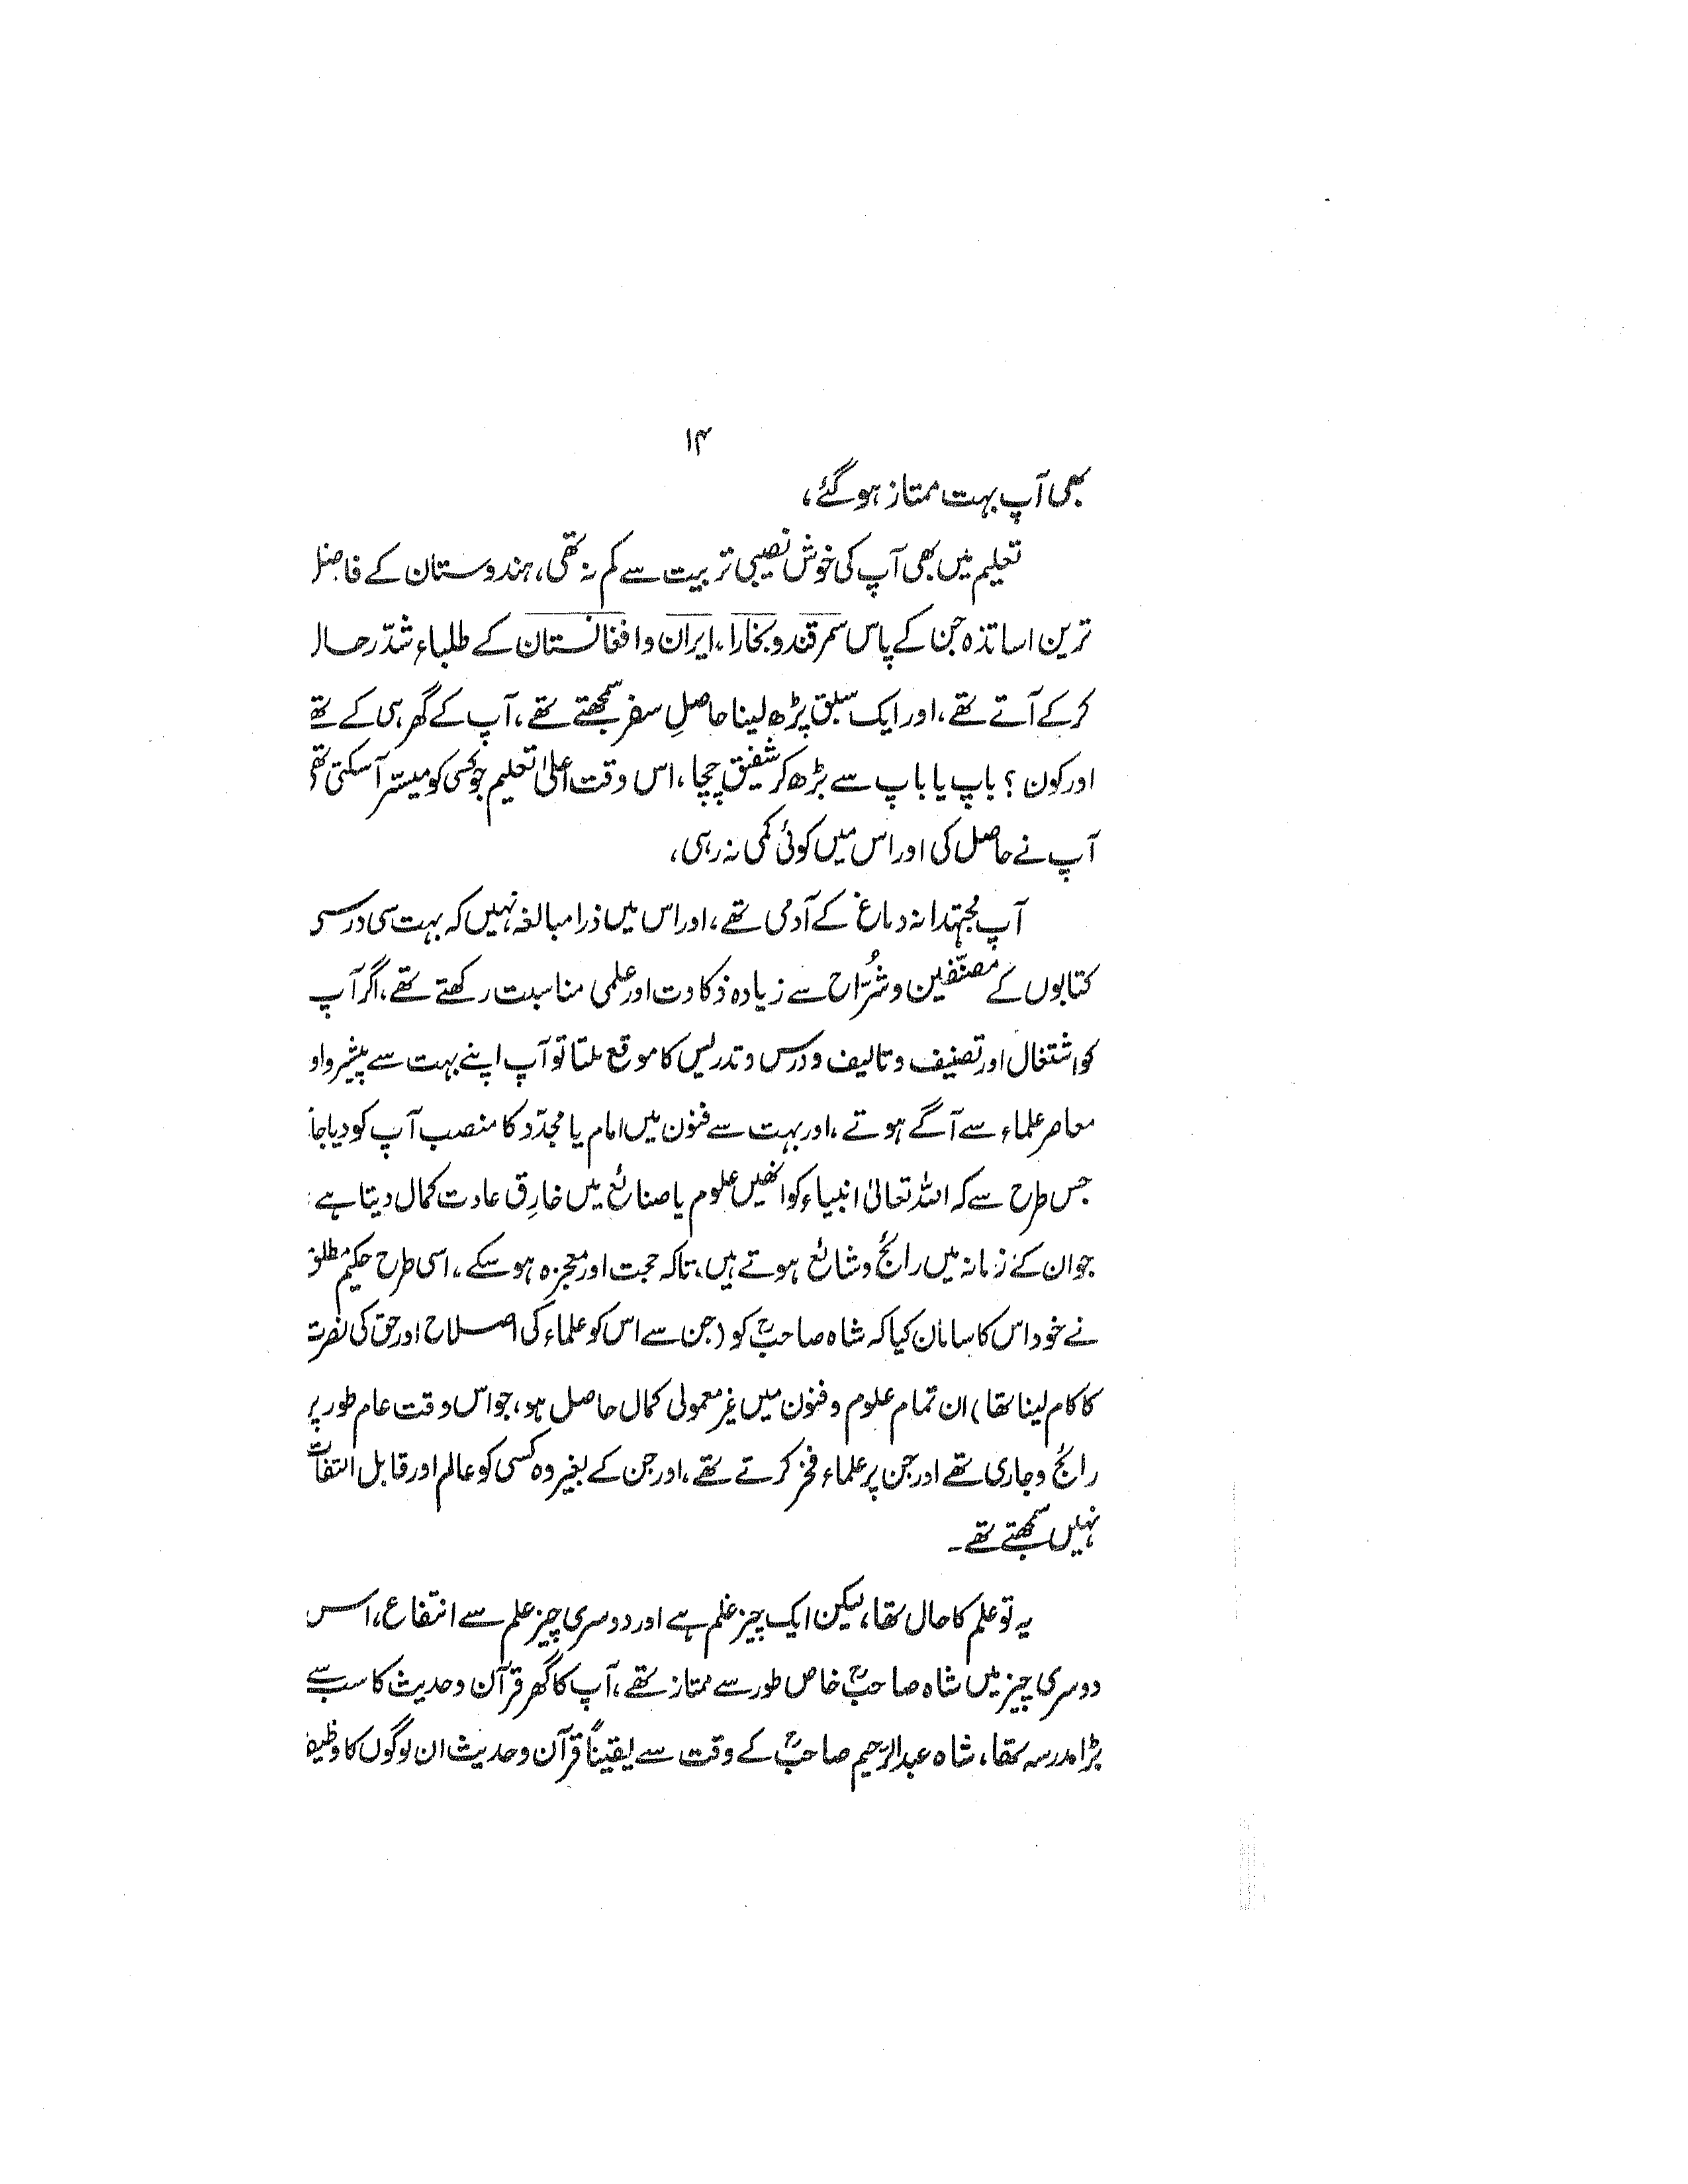 ۱۴
بھی آپ بہت ممتاز ہوگئے،
تعلیم میں بھی آپ کی خوش نصیبی تربیت سے کم نہ تھی، ہندوستان کے فاضل
ترین اساتذہ جن کے پاس سمرقند و بخارا، ایران و افغانستان کے طلباء شدّ رحال
کرکے آتے تھے، اور ایک سبق پڑھ لینا حاصلِ سفر سمجھتے تھے، آپ کے گھر ہی کے تھے
اور کون ؟ باپ یا باپ سے بڑھ کر شفیق چچا، اس وقت اعلیٰ تعلیم جو کسی کو میسّر آسکتی تھی
آپ نے حاصل کی اور اس میں کوئی کمی نہ رہی،
آپ مجتہدانہ دماغ کے آدمی تھے، اور اس میں ذرا مبالغہ نہیں کہ بہت سی درسی
کتابوں کے مصنّفین و شُرّاح سے زیادہ ذکاوت اور علمی مناسبت رکھتے تھے، اگر آپ
کو اشتغال اور تصنیف و تالیف و درس و تدریس کا موقع ملتا تو آپ اپنے بہت سے پیشرو او
معاصر علماء سے آگے ہوتے، اور بہت سے فنون میں امام یا مجدّد کا منصب آپ کو دیا جا
جس طرح سے کہ اللہ تعالیٰ انبیاء کو انھیں علوم یا صنائع میں خارِق عادت کمال دیتا ہے
جو ان کے زمانہ میں رائج و شائع ہوتے ہیں، تاکہ حجت اور معجزہ ہوسکے۔ اسی طرح حکیم مطلق
نے خود اس کا سامان کیا کہ شاہ صاحبؒ کو (جن سے اس کو علماء کی اصلاح اور حق کی نصرت
کا کام لینا تھا) ان تمام علوم و فنون میں غیر معمولی کمال حاصل ہو، جو اس وقت عام طور پر
رائج و جاری تھے اور جن پر علماء فخر کرتے تھے، اور جن کے بغیر وہ کسی کو عالم اور قابل التفات
نہیں سمجھتے تھے۔
یہ تو علم کا حال تھا، لیکن ایک چیز علم ہے اور دوسری چیز علم سے انتفاع، اس
دوسری چیز میں شاہ صاحبؒ خاص طور سے ممتاز تھے، آپ کا گھر قرآن و حدیث کا سب سے
بڑا مدرسہ تھا، شاہ عبدالرّحیم صاحبؒ کے وقت سے یقیناً قرآن و حدیث ان لوگوں کا وظیفہ